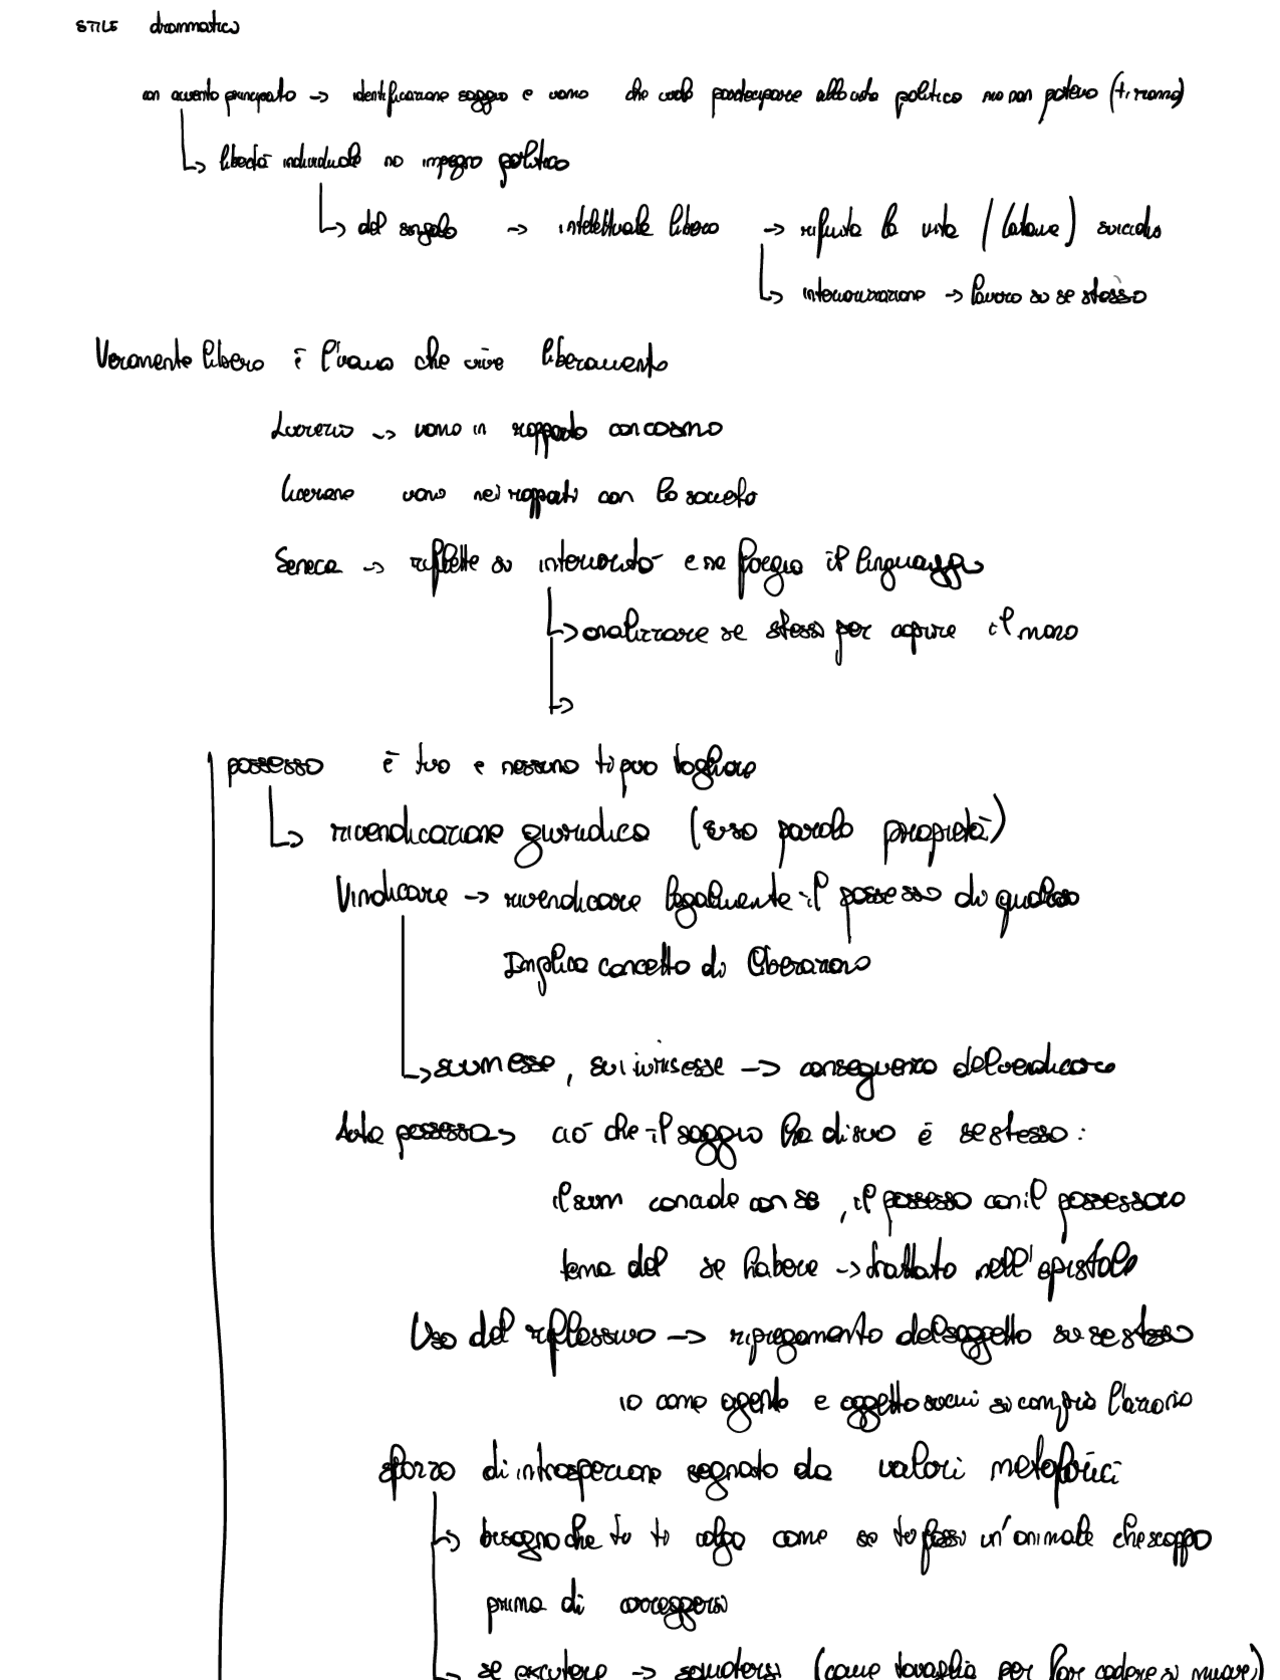 STILE drammatico
con avvento principato -> identificazione saggio e uomo che vuole partecipare alla vita politica ma non poteva (tiranno)
↳ libertà individuale no impegno politico
↳ del singolo -> intellettuale libero -> rifiuta la vita (Catone) suicidio
↳ interiorizzazione -> lavoro su se stesso
Veramente libero è l'uomo che vive liberamente
Lucrezio -> uomo in rapporto con cosmo
Cicerone uomo nei rapporti con la società
Seneca -> riflette su interiorità e ne forgia il linguaggio
↳ analizzare se stessi per capire il
↳
possesso è tuo e nessuno ti può togliere
↳ rivendicazione giuridica (uso parola proprietà)
Vindicare -> rivendicare legalmente il possesso di qualcosa
Implica concetto di liberazione
↳ suum esse, sui iuris esse -> conseguenza del vendicare
Auto possesso -> ciò che il saggio ha di suo è se stesso:
il suum coincide con se, il possesso con il possessore
tema del se habere -> trattato nell'epistola
Uso del riflessivo -> ripiegamento del soggetto su se stesso
io come agente e oggetto su cui si compie l'azione
sforzo di introspezione segnato da valori metaforici
↳ bisogno che tu ti colga come se tu fossi un'animale che scappa
prima di correggersi
↳ se excutere -> scuotersi (come tovaglia per far cadere si muove)